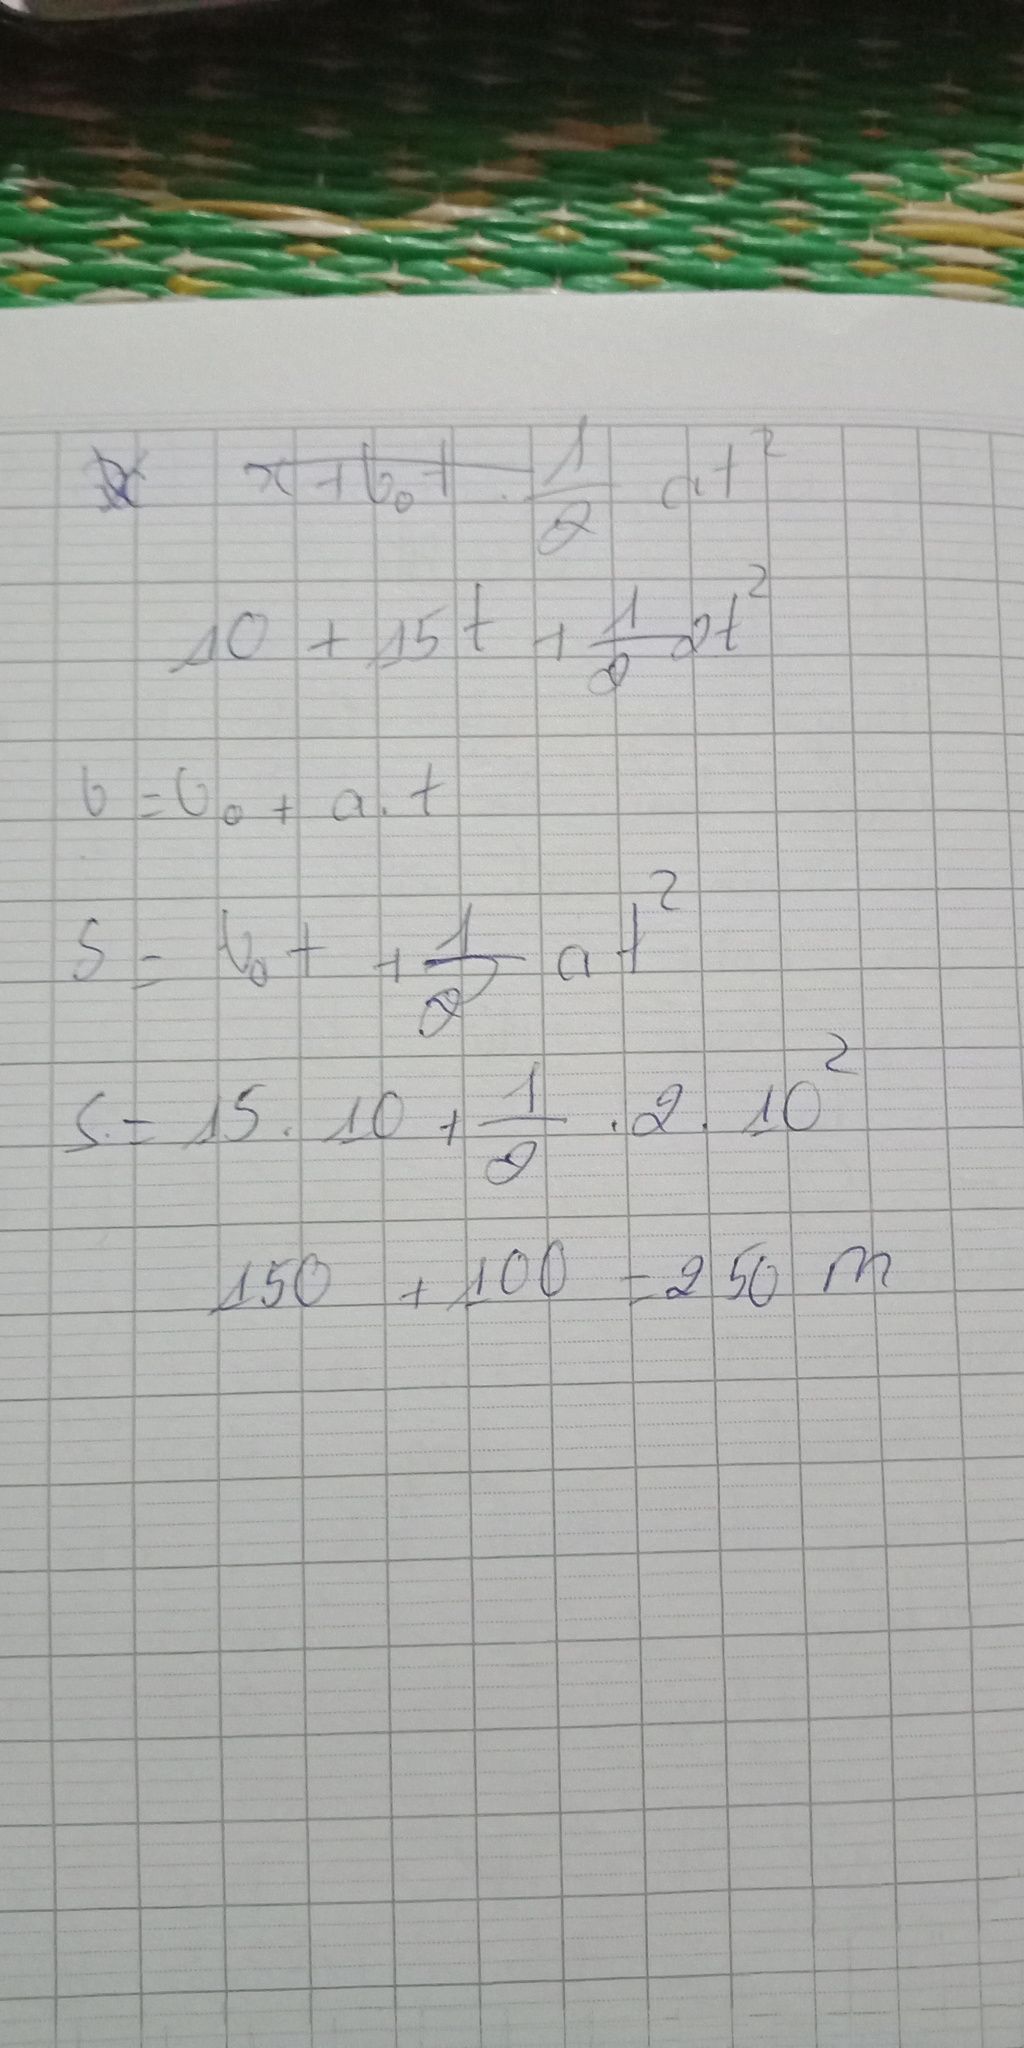 x + v₀t . 1/2 at²
10 + 15t + 1/2 2t²
v = v₀ + a.t
S = v₀t + 1/2 at²
S = 15 . 10 + 1/2 . 2 . 10²
150 + 100 = 250 m